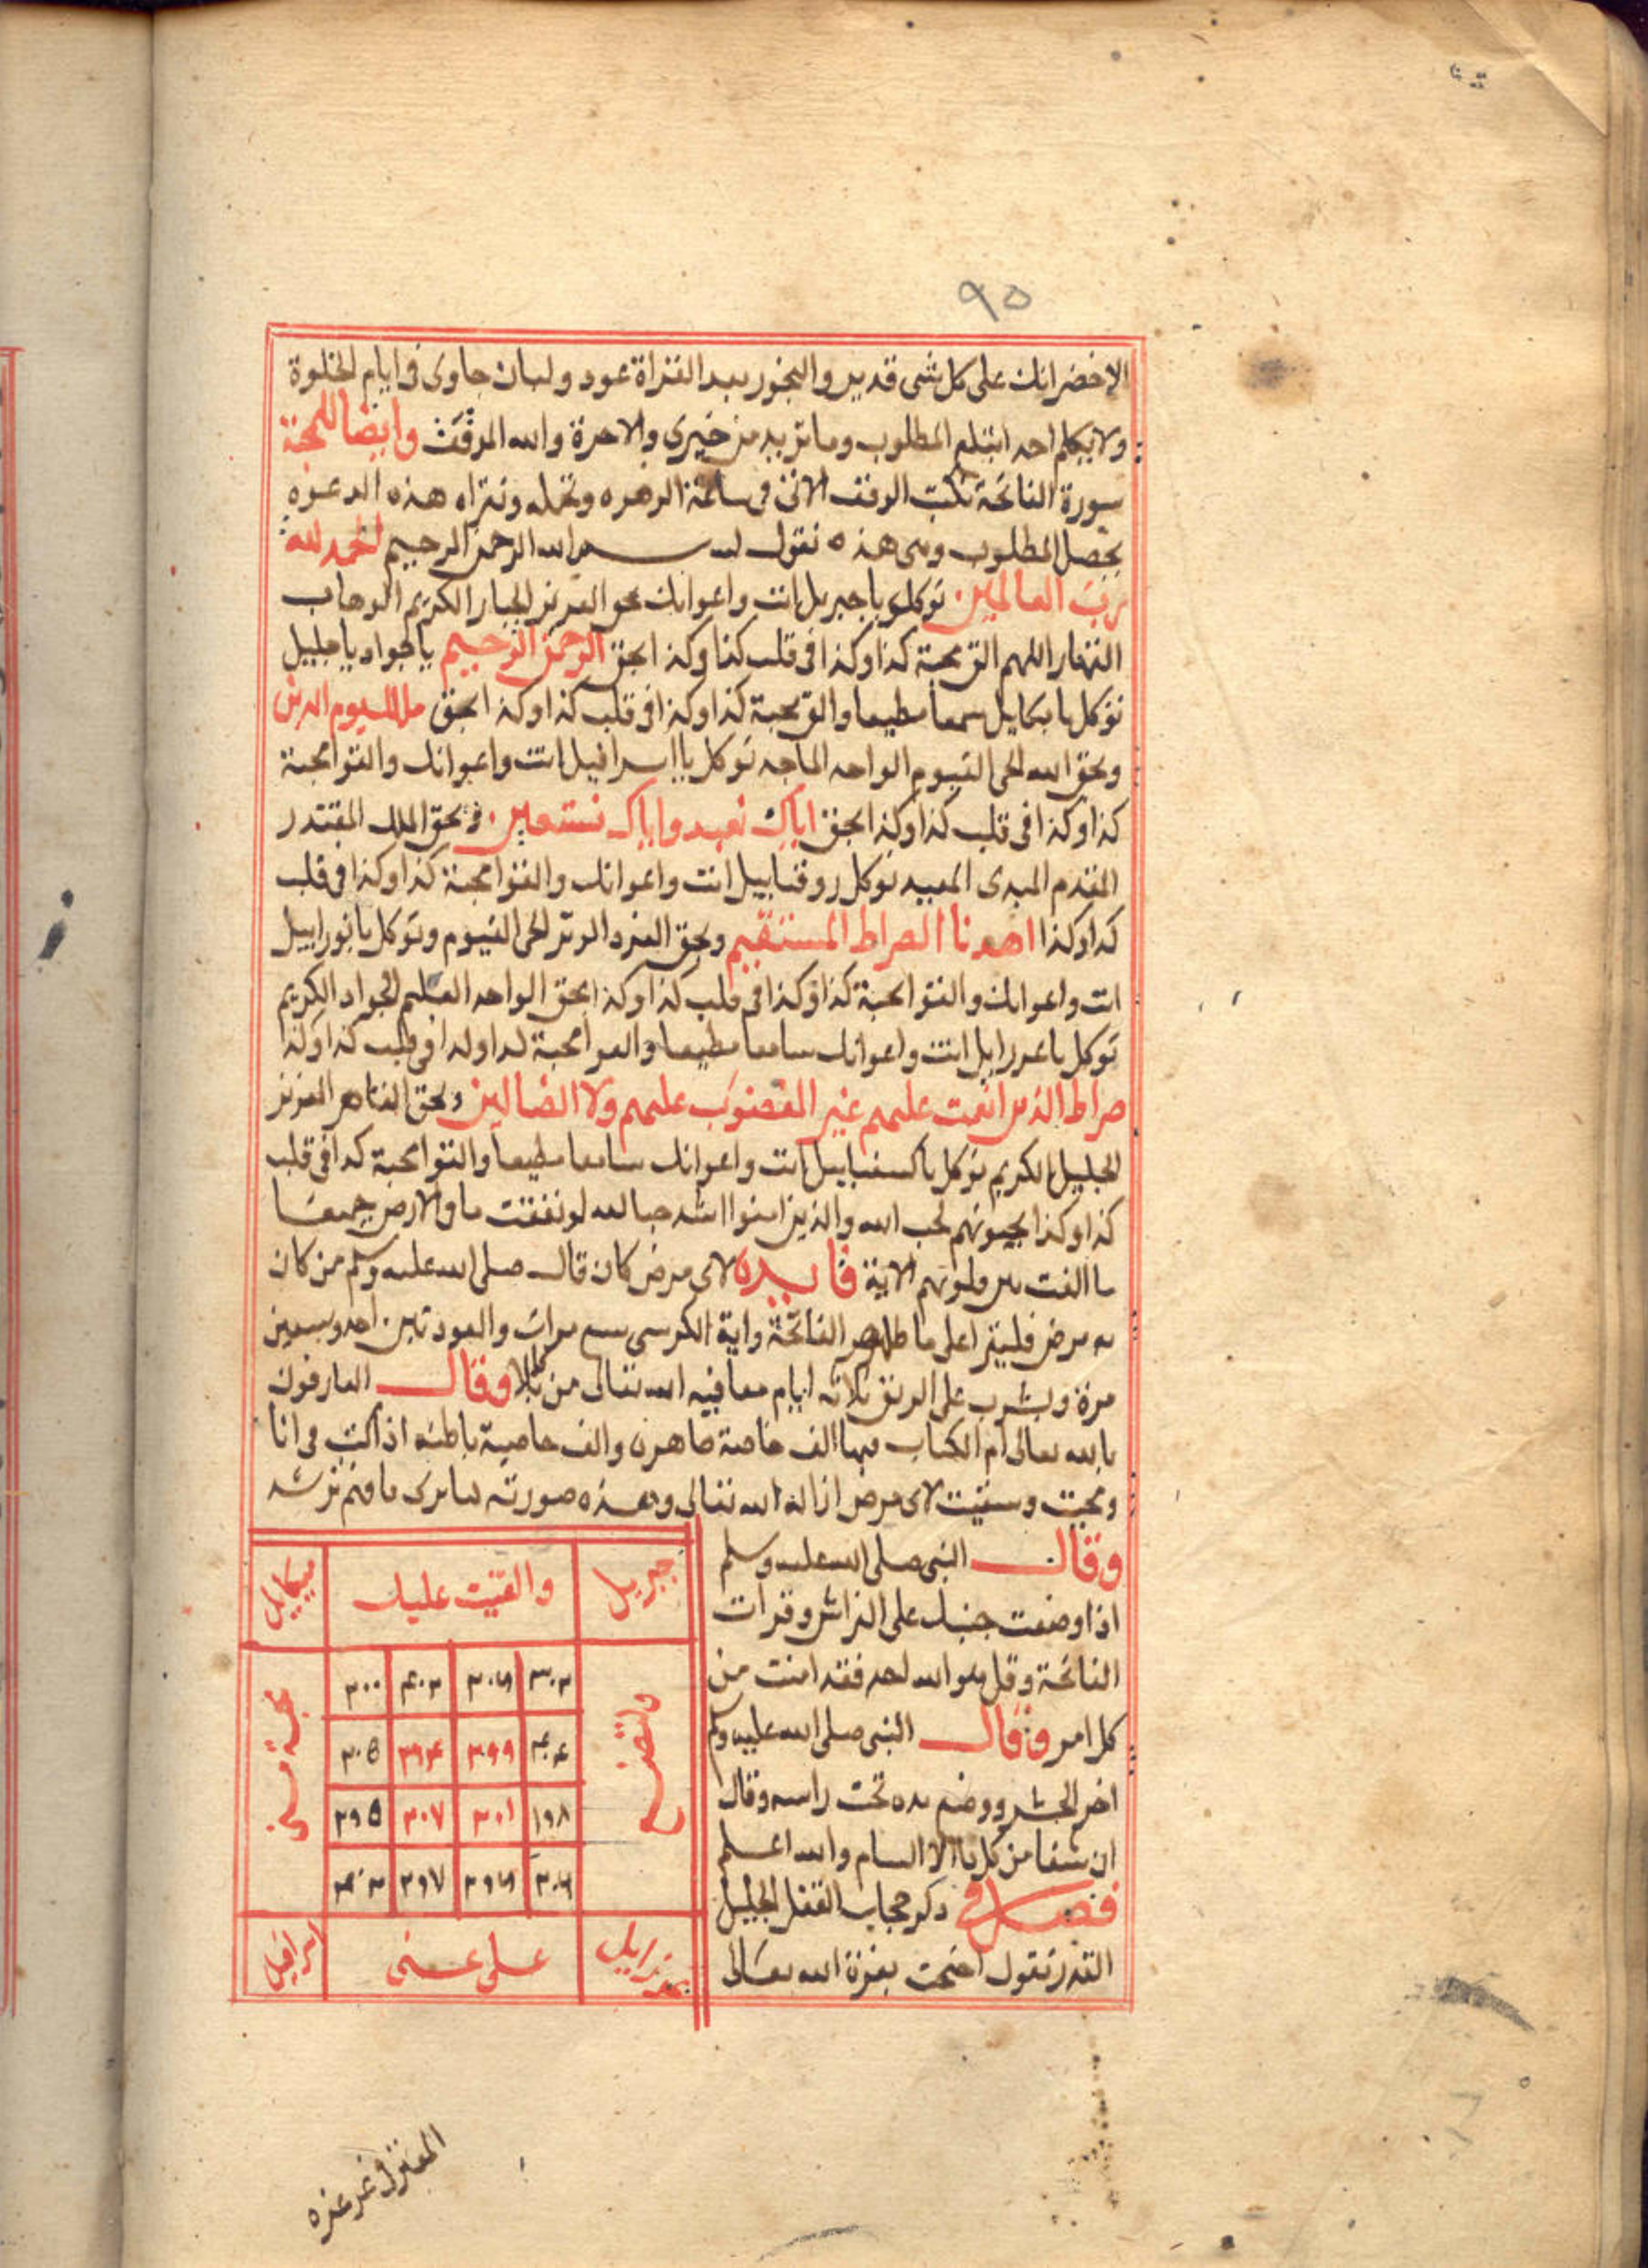 ٩٥
الاخضر انك على كل شى قدير والبخور بعد القراة عود ولبان جاوى فى ايام الخلوة
ولا يكلم احد ابتلع المطلوب وما تريد من خيرى والاخرة والله الموفق وايضا للمحبة
سورة الفاتحة تكتب الوفق الاتى فى ساعة الزهره وتحمله وتقراه هذه الدعوه
يحصل المطلوب وهى هذه تقول بسم الله الرحمن الرحيم الحمد لله
رب العالمين توكلو يا جبريل انت واعوانك بحق العزيز الجبار الكريم الوهاب
القهار اللهم الق محبة كذا وكذا فى قلب كذا وكذا بحق الرحمن الرحيم يا جواد يا جليل
توكل يا ميكاييل سمعا مطيعا والق محبة كذا وكذا فى قلب كذا وكذا بحق ملك يوم الدين
وبحق الله الحى القيوم الواحد الماجد توكل يا اسرافيل انت واعوانك والقوا محبة
كذا وكذا فى قلب كذا وكذا بحق اياك نعبد واياك نستعين وبحق الملك المقتدر
المقدم المبدى المعيد توكل روقياييل انت واعوانك والقوا محبة كذا وكذا فى قلب
كذا وكذا اهدنا الصراط المستقيم وبحق الفرد الوتر الحى القيوم وتوكل يا نوراييل
انت واعوانك والقوا محبة كذا وكذا فى قلب كذا وكذا بحق الواحد العليم الجواد الكريم
توكل يا عزراييل انت واعوانك سامعا مطيعا والقوا محبة كذا وكذا فى قلب كذا وكذا
صراط الذين انعمت عليهم غير المغضوب عليهم ولا الضالين وبحق القاهر العزيز
الجليل الكريم توكل يا كسفياييل انت واعوانك سامعا مطيعا والقوا محبة كذا فى قلب
كذا وكذا يحبونهم كحب الله والذين امنوا اشد حبا لله لو نفقت ما فى الارض جميعا
ما الفت بين قلوبهم الاية فايده لاى مرض كان قال صلى الله عليه وسلم من كان
به مرض فليقرا على ما طاهر الفاتحة واية الكرسى سبع مرات والعودتين احد وسبعين
مرة ويشرب على الريق ثلاثه ايام معافيه الله تعالى من بلا وقال العارفون
بالله تعالى ام الكتاب فيها الف خاصة ظاهره والف خاصية باطنه اذا كتبت فى انا
ومحيت وسقيت لاى مرض ازاله الله تعالى وهذه صورته كما ترى فافهم ترشد
وقال النبى صلى الله عليه وسلم
اذا وضعت جنبك على الفراش وقرات
الفاتحة وقل هو الله احد فقد امنت من
كل امر وقال النبى صلى الله عليه وسلم
اخر الحشر ووضع يده تحت راسه وقال
ان شفا من كل دا الا السام والله اعلم
فصل فى ذكر حجاب القفل الجليل
القدر تقول احتجت بعزة الله تعالى
جبريل والقيت عليك ميكاييل
ولتصنع محبة منى
٣٠٣ ٣٠٦ ٣٠٣ ٣٠٠
٣٠٤ ٣٩٩ ٣٩٤ ٣٠٥
١٩٨ ٣٠١ ٣٠٧ ٢٩٥
٣٠٦ ٢٩٦ ٢٩٧ ٣٠٣
عزراييل على عينى اسرافيل